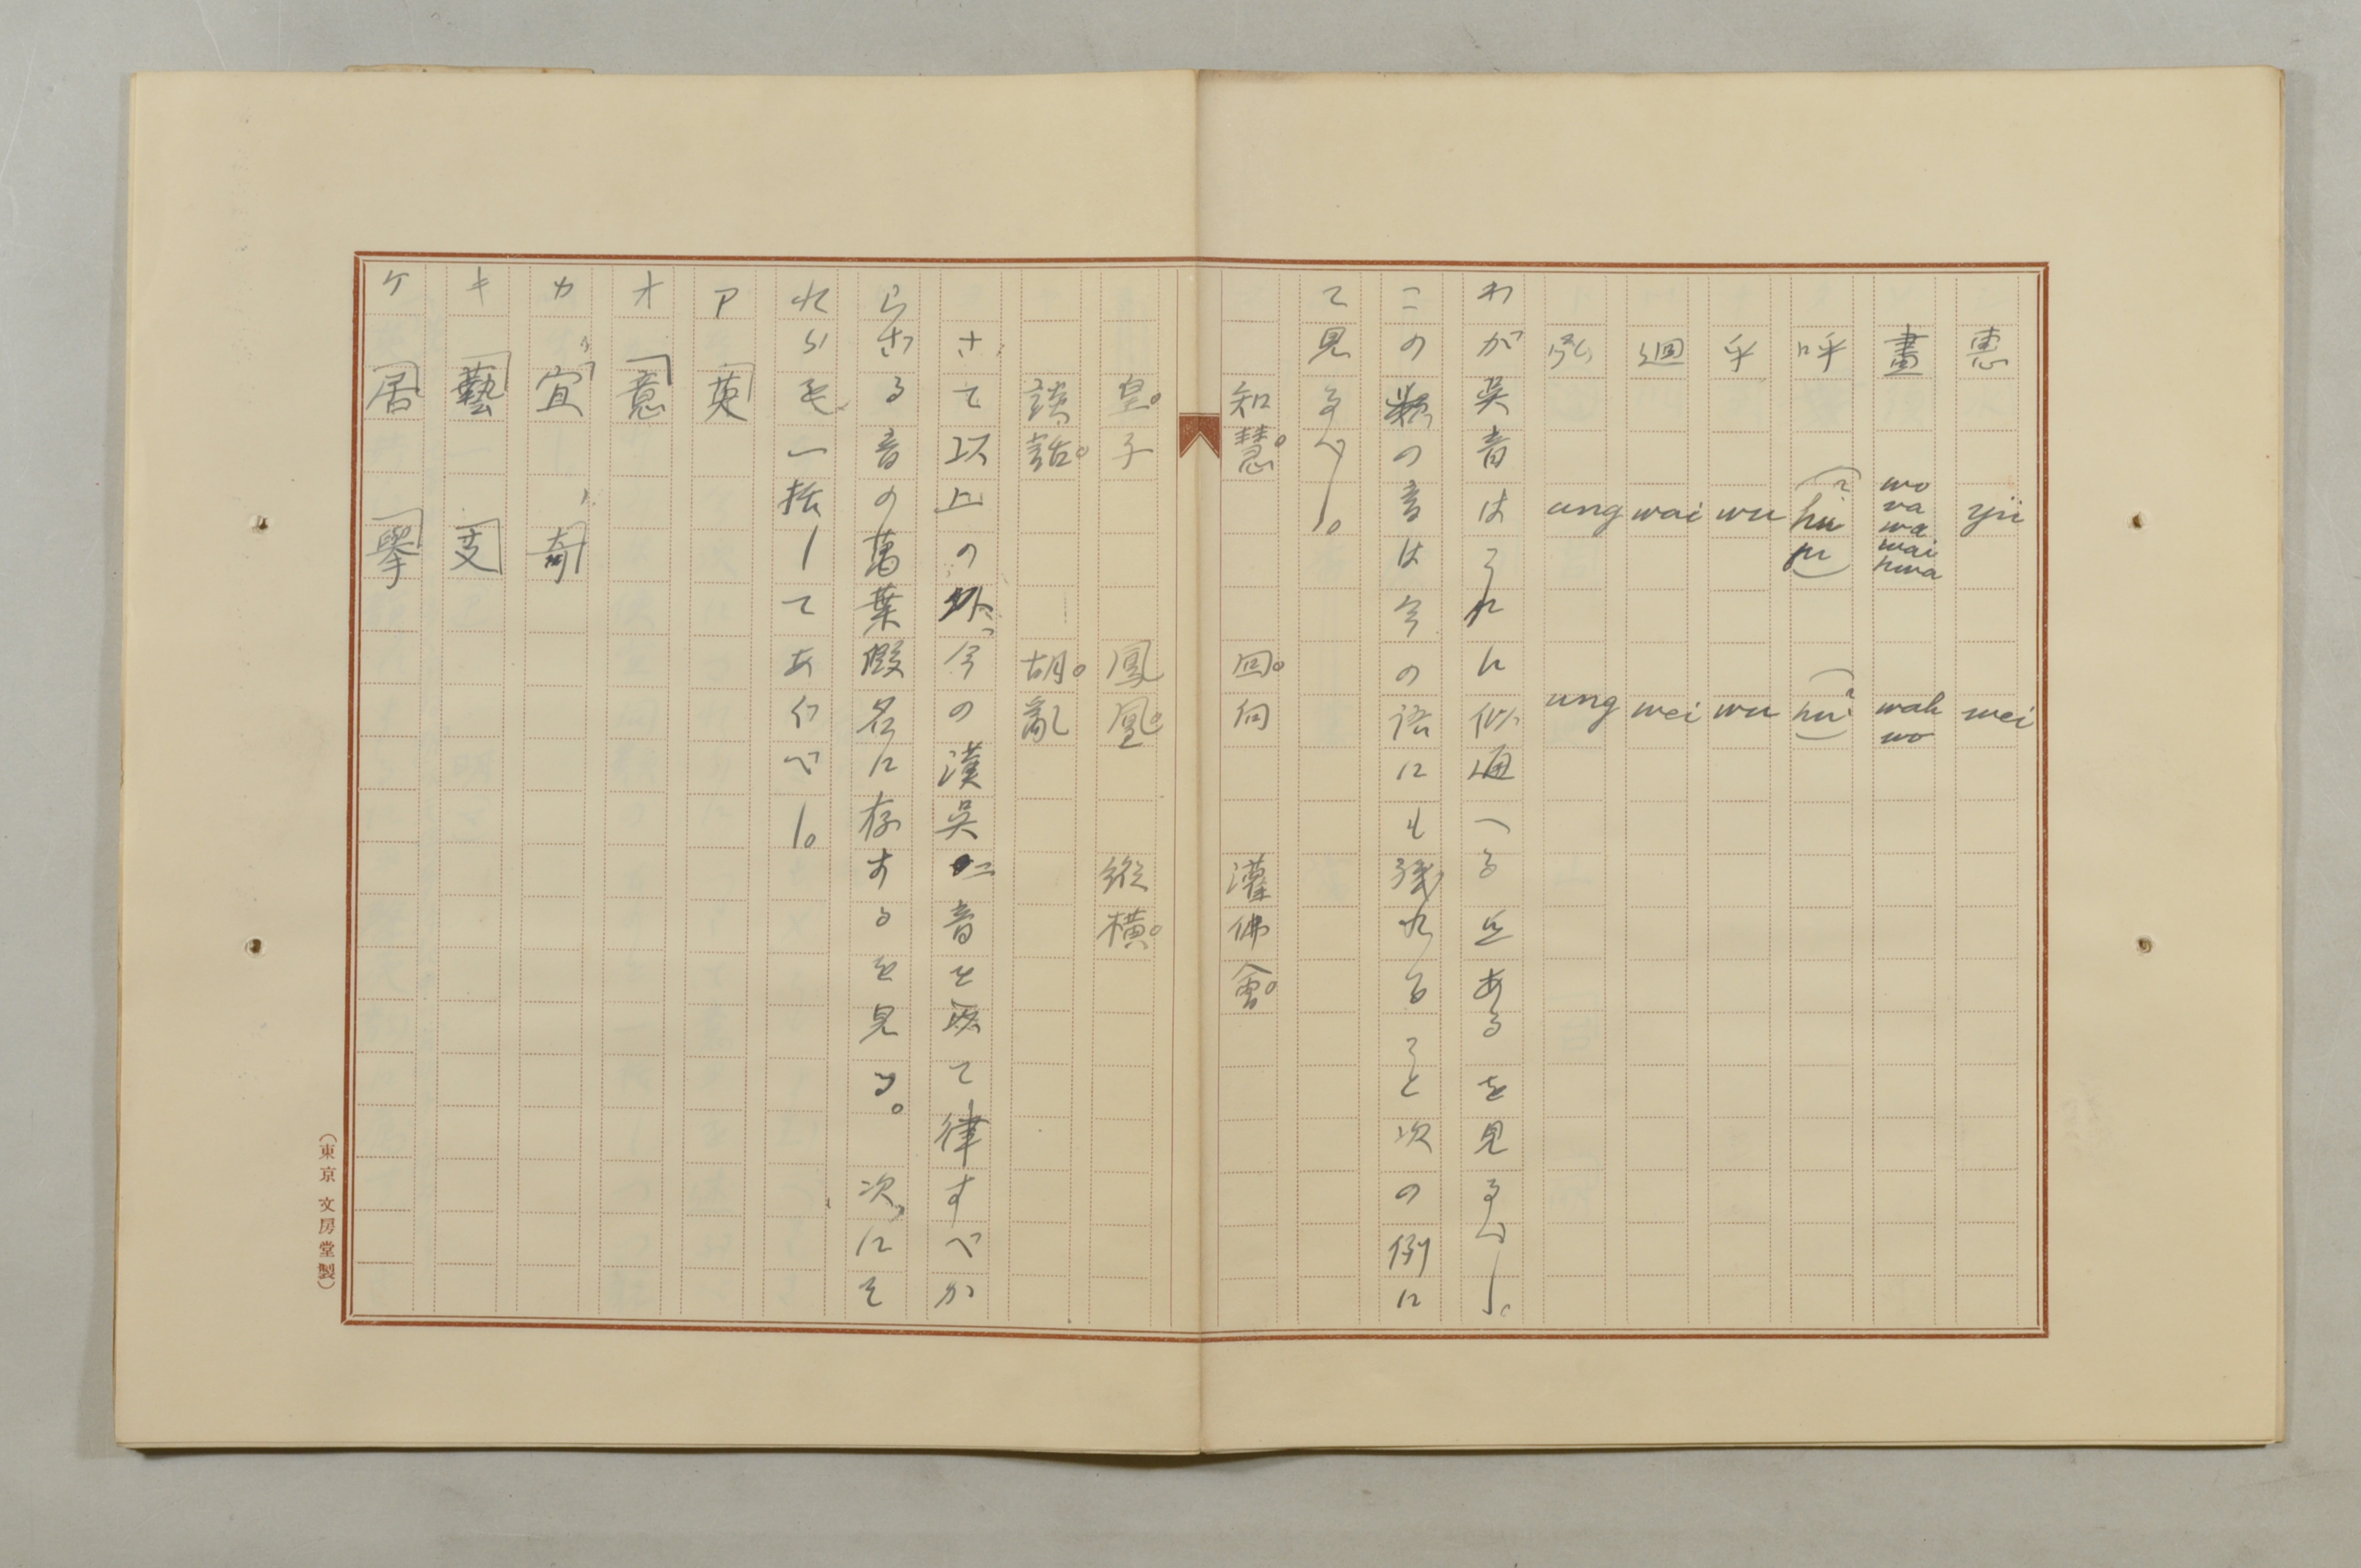 惠 yü wei
畫 wo va wa wai hwa wah wo
呼 (hu fu) (hu)
乎 wu wu
廻 wai wei
弘 ung ung
わが吳音はこれに似通へる点あるを見るべし。
この類の音は今の語にも殘れること次の例に
て見るべし。
知慧。 回。向 灌佛會。
皇。子 鳳凰。 縱横。
談話。 胡。亂
さて以上の外、今の漢吳二音を以て律すべか
らざる音の萬葉假名に存するを見る。 次にそ
れらを一括してあぐべし。
ア 英
オ 意
カ 宜 奇
キ 藝 支
ケ 居 擧
(東京 文房堂製)